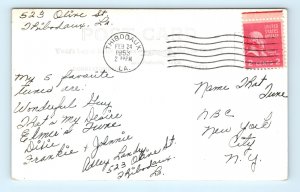 523 Olive St.
Thibodaux, La.
THIBODAUX
FEB 24
1953
LA.
My 5 favorite
tunes are:
Wonderful Guy
That's my Desire
Elmer's Tune
Dixie
Frankie & Johnnie
523 Olive St
Thibodaux,
La.
2
Name That
Tune
NBC
New York
City
N.Y.